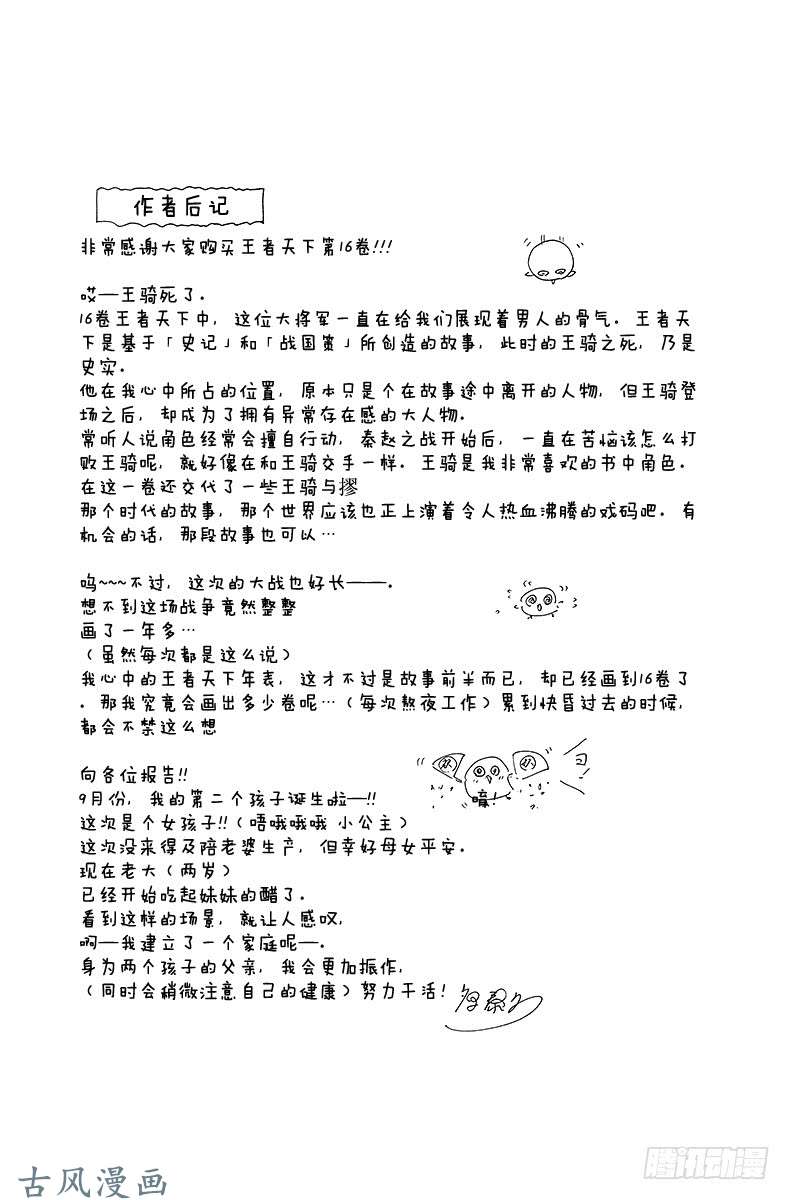 作者后记
非常感谢大家购买王者天下第16卷!!!
哎—王骑死了.
16卷王者天下中，这位大将军一直在给我们展现着男人的骨气. 王者天
下是基于「史记」和「战国策」所创造的故事，此时的王骑之死，乃是
史实.
他在我心中所占的位置，原本只是个在故事途中离开的人物，但王骑登
场之后，却成为了拥有异常存在感的大人物.
常听人说角色经常会擅自行动，秦赵之战开始后，一直在苦恼该怎么打
败王骑呢，就好像在和王骑交手一样. 王骑是我非常喜欢的书中角色.
在这一卷还交代了一些王骑与摎
那个时代的故事，那个世界应该也正上演着令人热血沸腾的戏码吧. 有
机会的话，那段故事也可以…
呜~~~不过，这次的大战也好长——.
想不到这场战争竟然整整
画了一年多…
（虽然每次都是这么说）
我心中的王者天下年表，这才不过是故事前半而已，却已经画到16卷了
. 那我究竟会画出多少卷呢…（每次熬夜工作）累到快昏过去的时候，
都会不禁这么想
向各位报告!!
9月份，我的第二个孩子诞生啦—!!
嘀!
这次是个女孩子!!（唔哦哦哦 小公主）
这次没来得及陪老婆生产，但幸好母女平安.
现在老大（两岁）
已经开始吃起妹妹的醋了.
看到这样的场景，就让人感叹，
啊—我建立了一个家庭呢—.
身为两个孩子的父亲，我会更加振作，
（同时会稍微注意自己的健康）努力干活!
古风漫画
腾讯动漫